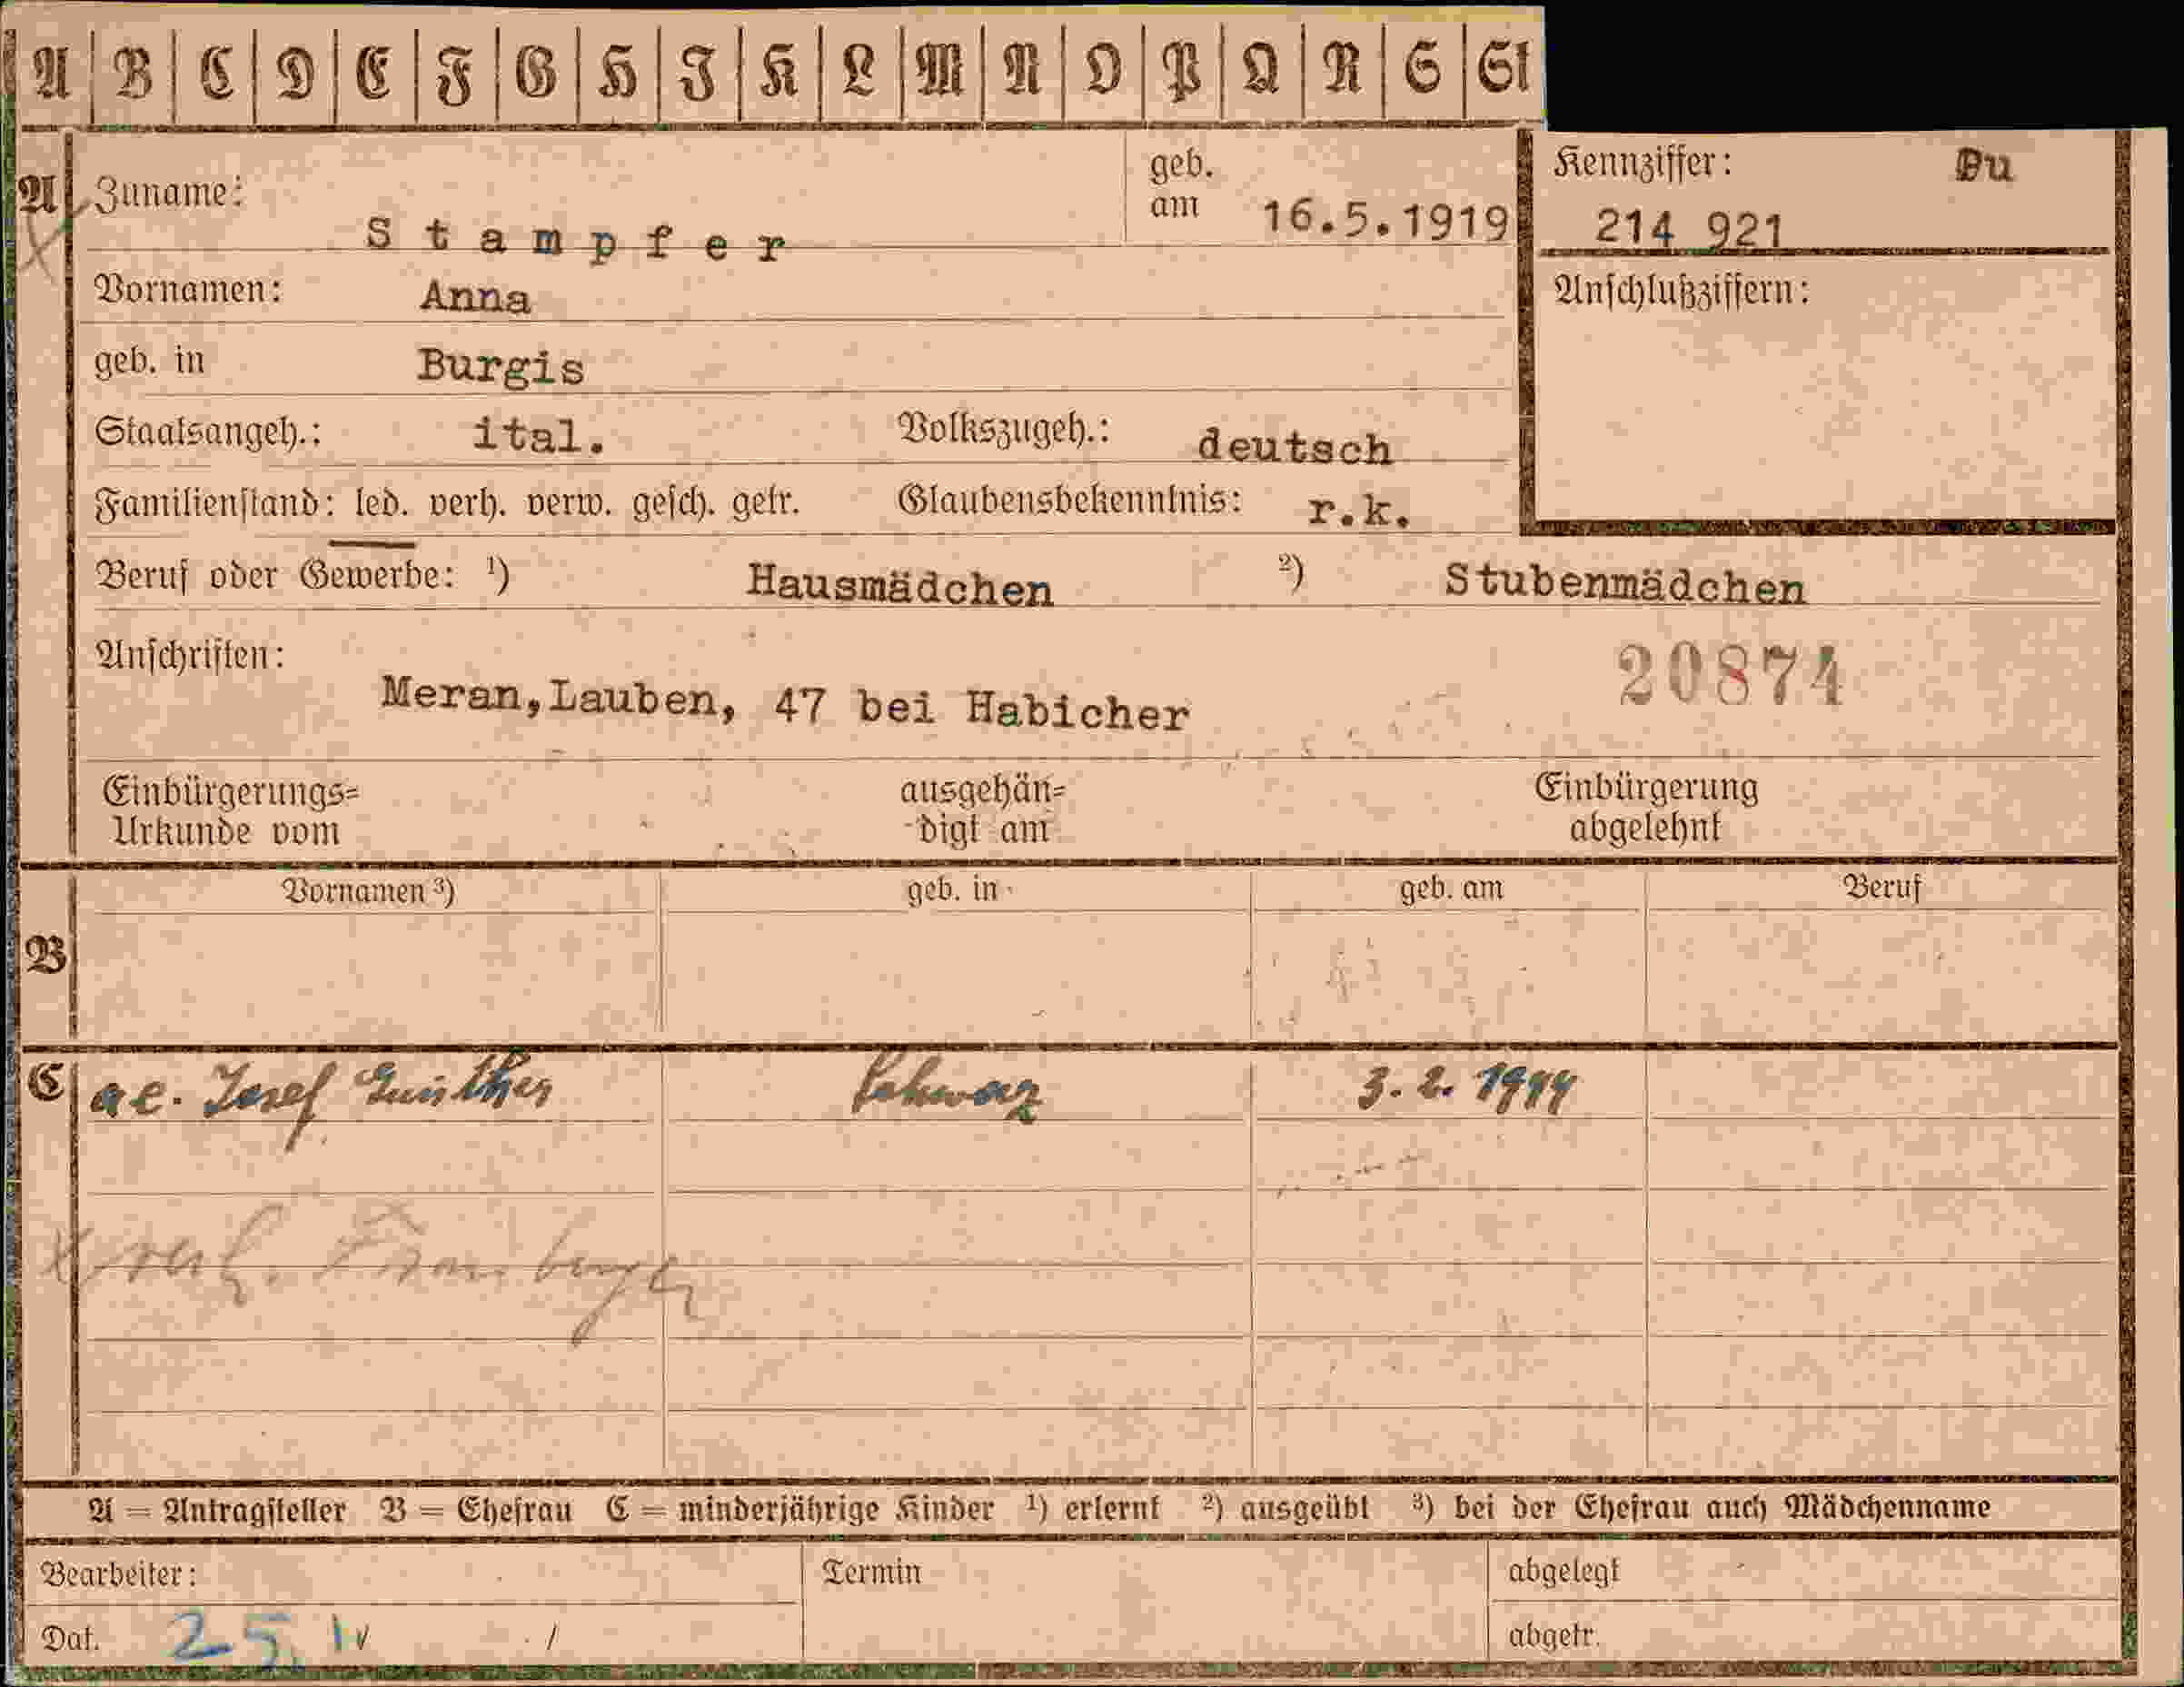 A B C D E F G H I K L M N O P Q R S St
A Zuname: Stampfer geb. am 16.5.1919
Kennziffer: Du
214 921
Vornamen: Anna
Anschlußziffern:
geb. in Burgis
Staatsangeh.: ital. Volkszugeh.: deutsch
Familienstand: led. verh. verw. gesch. getr. Glaubensbekenntnis: r.k.
Beruf oder Gewerbe: ¹) Hausmädchen ²) Stubenmädchen
Anschriften: 20874
Meran,Lauben, 47 bei Habicher
Einbürgerungs= ausgehän= Einbürgerung
Urkunde vom digt am abgelehnt
Vornamen ³) geb. in geb. am Beruf
B
C ae. Josef Günther Schwaz 3. 2. 1944
X verh.
A = Antragsteller B = Ehefrau C = minderjährige Kinder ¹) erlernt ²) ausgeübt ³) bei der Ehefrau auch Mädchenname
Bearbeiter: Termin abgelegt
Dat. 25. IV abgetr.